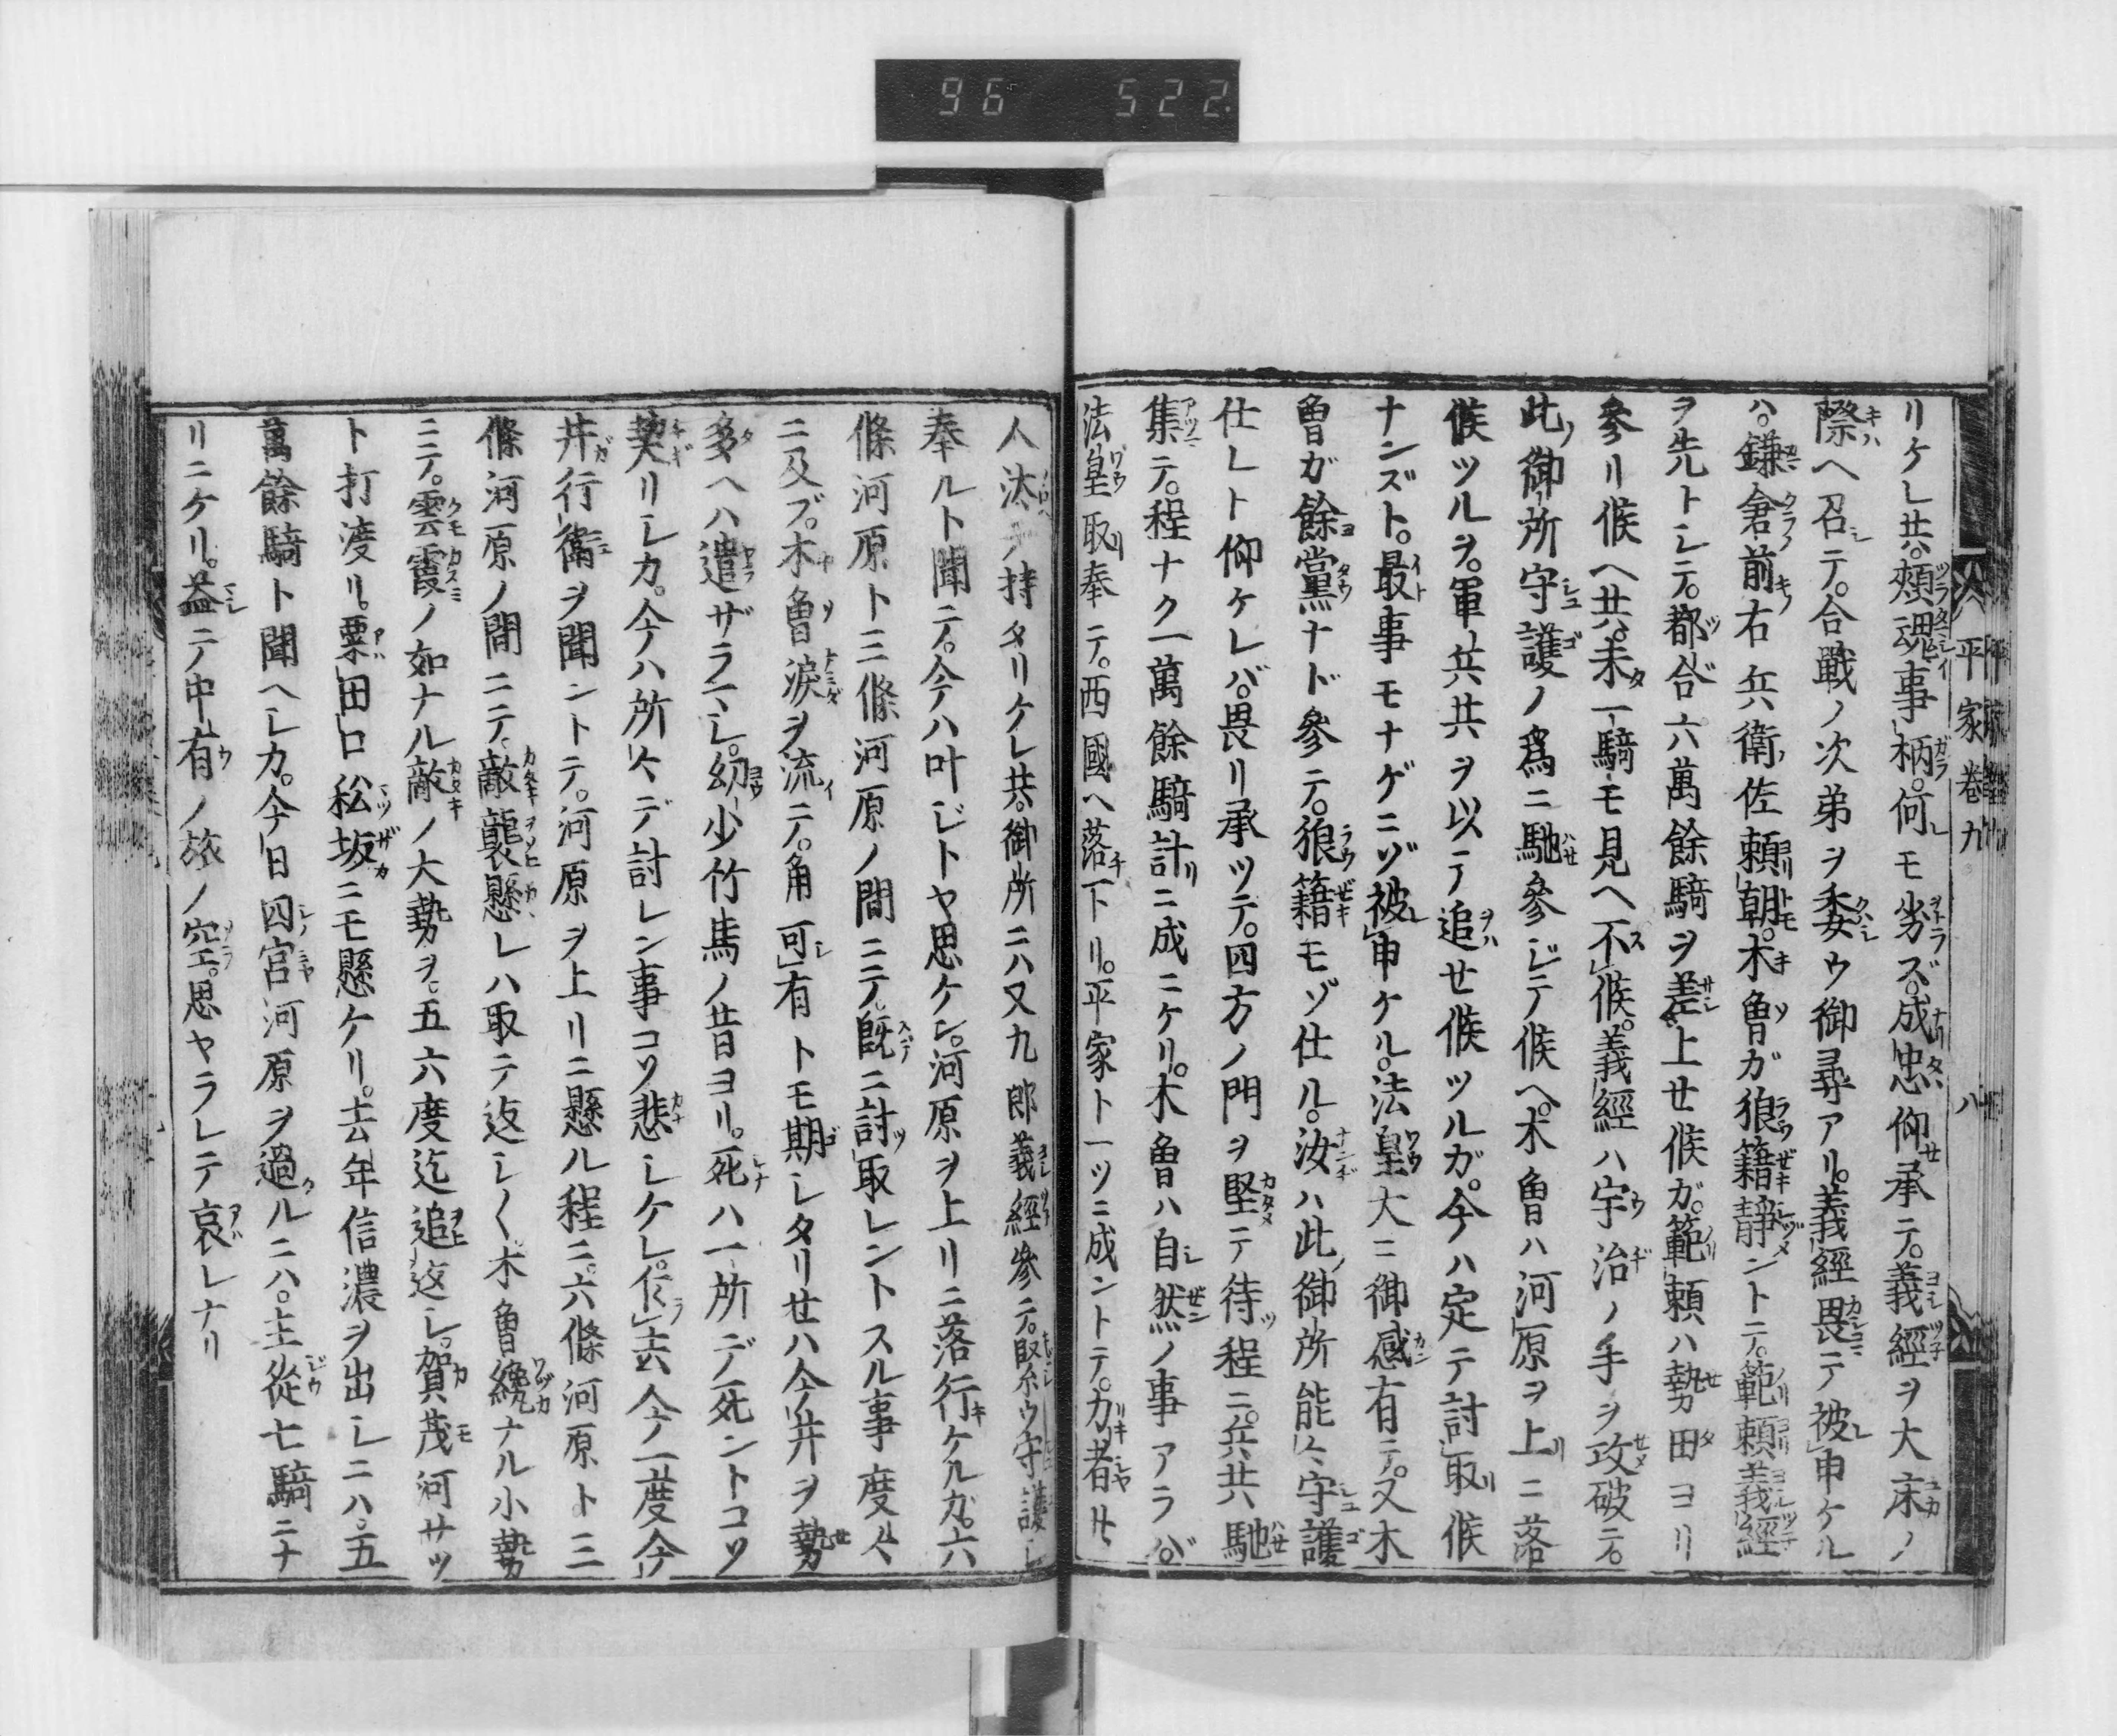 96 522
平家卷九 八
リケレ共。頰魂事柄。何モ劣ズ。成忠仰承テ。義經ヲ大床ノ
際ヘ召テ。合戰ノ次弟ヲ委ウ御尋アリ。義經畏テ被申ケル
ハ。鎌倉前右兵衛佐賴朝。木曾ガ狼籍靜ントテ。範賴義經
ヲ先トシテ。都合六萬餘騎ヲ差上セ候ガ。範賴ハ勢田ヨリ
參リ候ヘ共。未一騎モ見ヘ不候。義經ハ宇治ノ手ヲ攻破テ。
此御所守護ノ爲ニ馳參ジテ候ヘ。木曾ハ河原ヲ上ニ落
候ツルヲ。軍兵共ヲ以テ追セ候ツルガ。今ハ定テ討取候
ナンズト。最事モナゲニゾ被申ケル。法皇大ニ御感有テ。又木
曾ガ餘黨ナド參テ。狼籍モゾ仕ル。汝ハ此御所能々守護
仕レト仰ケレバ。畏リ承ツテ。四方ノ門ヲ堅テ待程ニ。兵共馳
集テ。程ナク一萬餘騎計ニ成ニケリ。木曾ハ自然ノ事アラバ。
法皇取奉テ。西國ヘ落下リ。平家ト一ツニ成ントテ。力者廿
人汰テ持タリケレ共。御所ニハ又九郎義經參テ。緊ウ守護シ
奉ルト聞テ。今ハ叶ジトヤ思ケン。河原ヲ上リニ落行ケルカ。六
條河原ト三條河原ノ間ニテ。既ニ討取レントスル事度々
ニ及ブ。木曾淚ヲ流テ。角可有トモ期シタリセハ今井ヲ勢
多ヘハ遣ザラマシ。幼少竹馬ノ昔ヨリ。死ハ一所デ死ントコソ
契リシカ。今ハ所々デ討レン事コソ悲シケレ。乍去今一度今
井行衞ヲ聞ントテ。河原ヲ上リニ懸ル程ニ。六條河原ト三
條河原ノ間ニテ。敵襲懸レハ取テ返シ〱。木曾纔ナル小勢
ニテ。雲霞ノ如ナル敵ノ大勢ヲ。五六度迄追返シ。賀茂河サツ
ト打渡リ。粟田口松坂ニモ懸ケリ。去年信濃ヲ出シニハ。五
萬餘騎ト聞ヘシカ。今日四宮河原ヲ過ルニハ。主從七騎ニナ
リニケリ。益テ中有ノ旅ノ空。思ヤラレテ哀レナリ